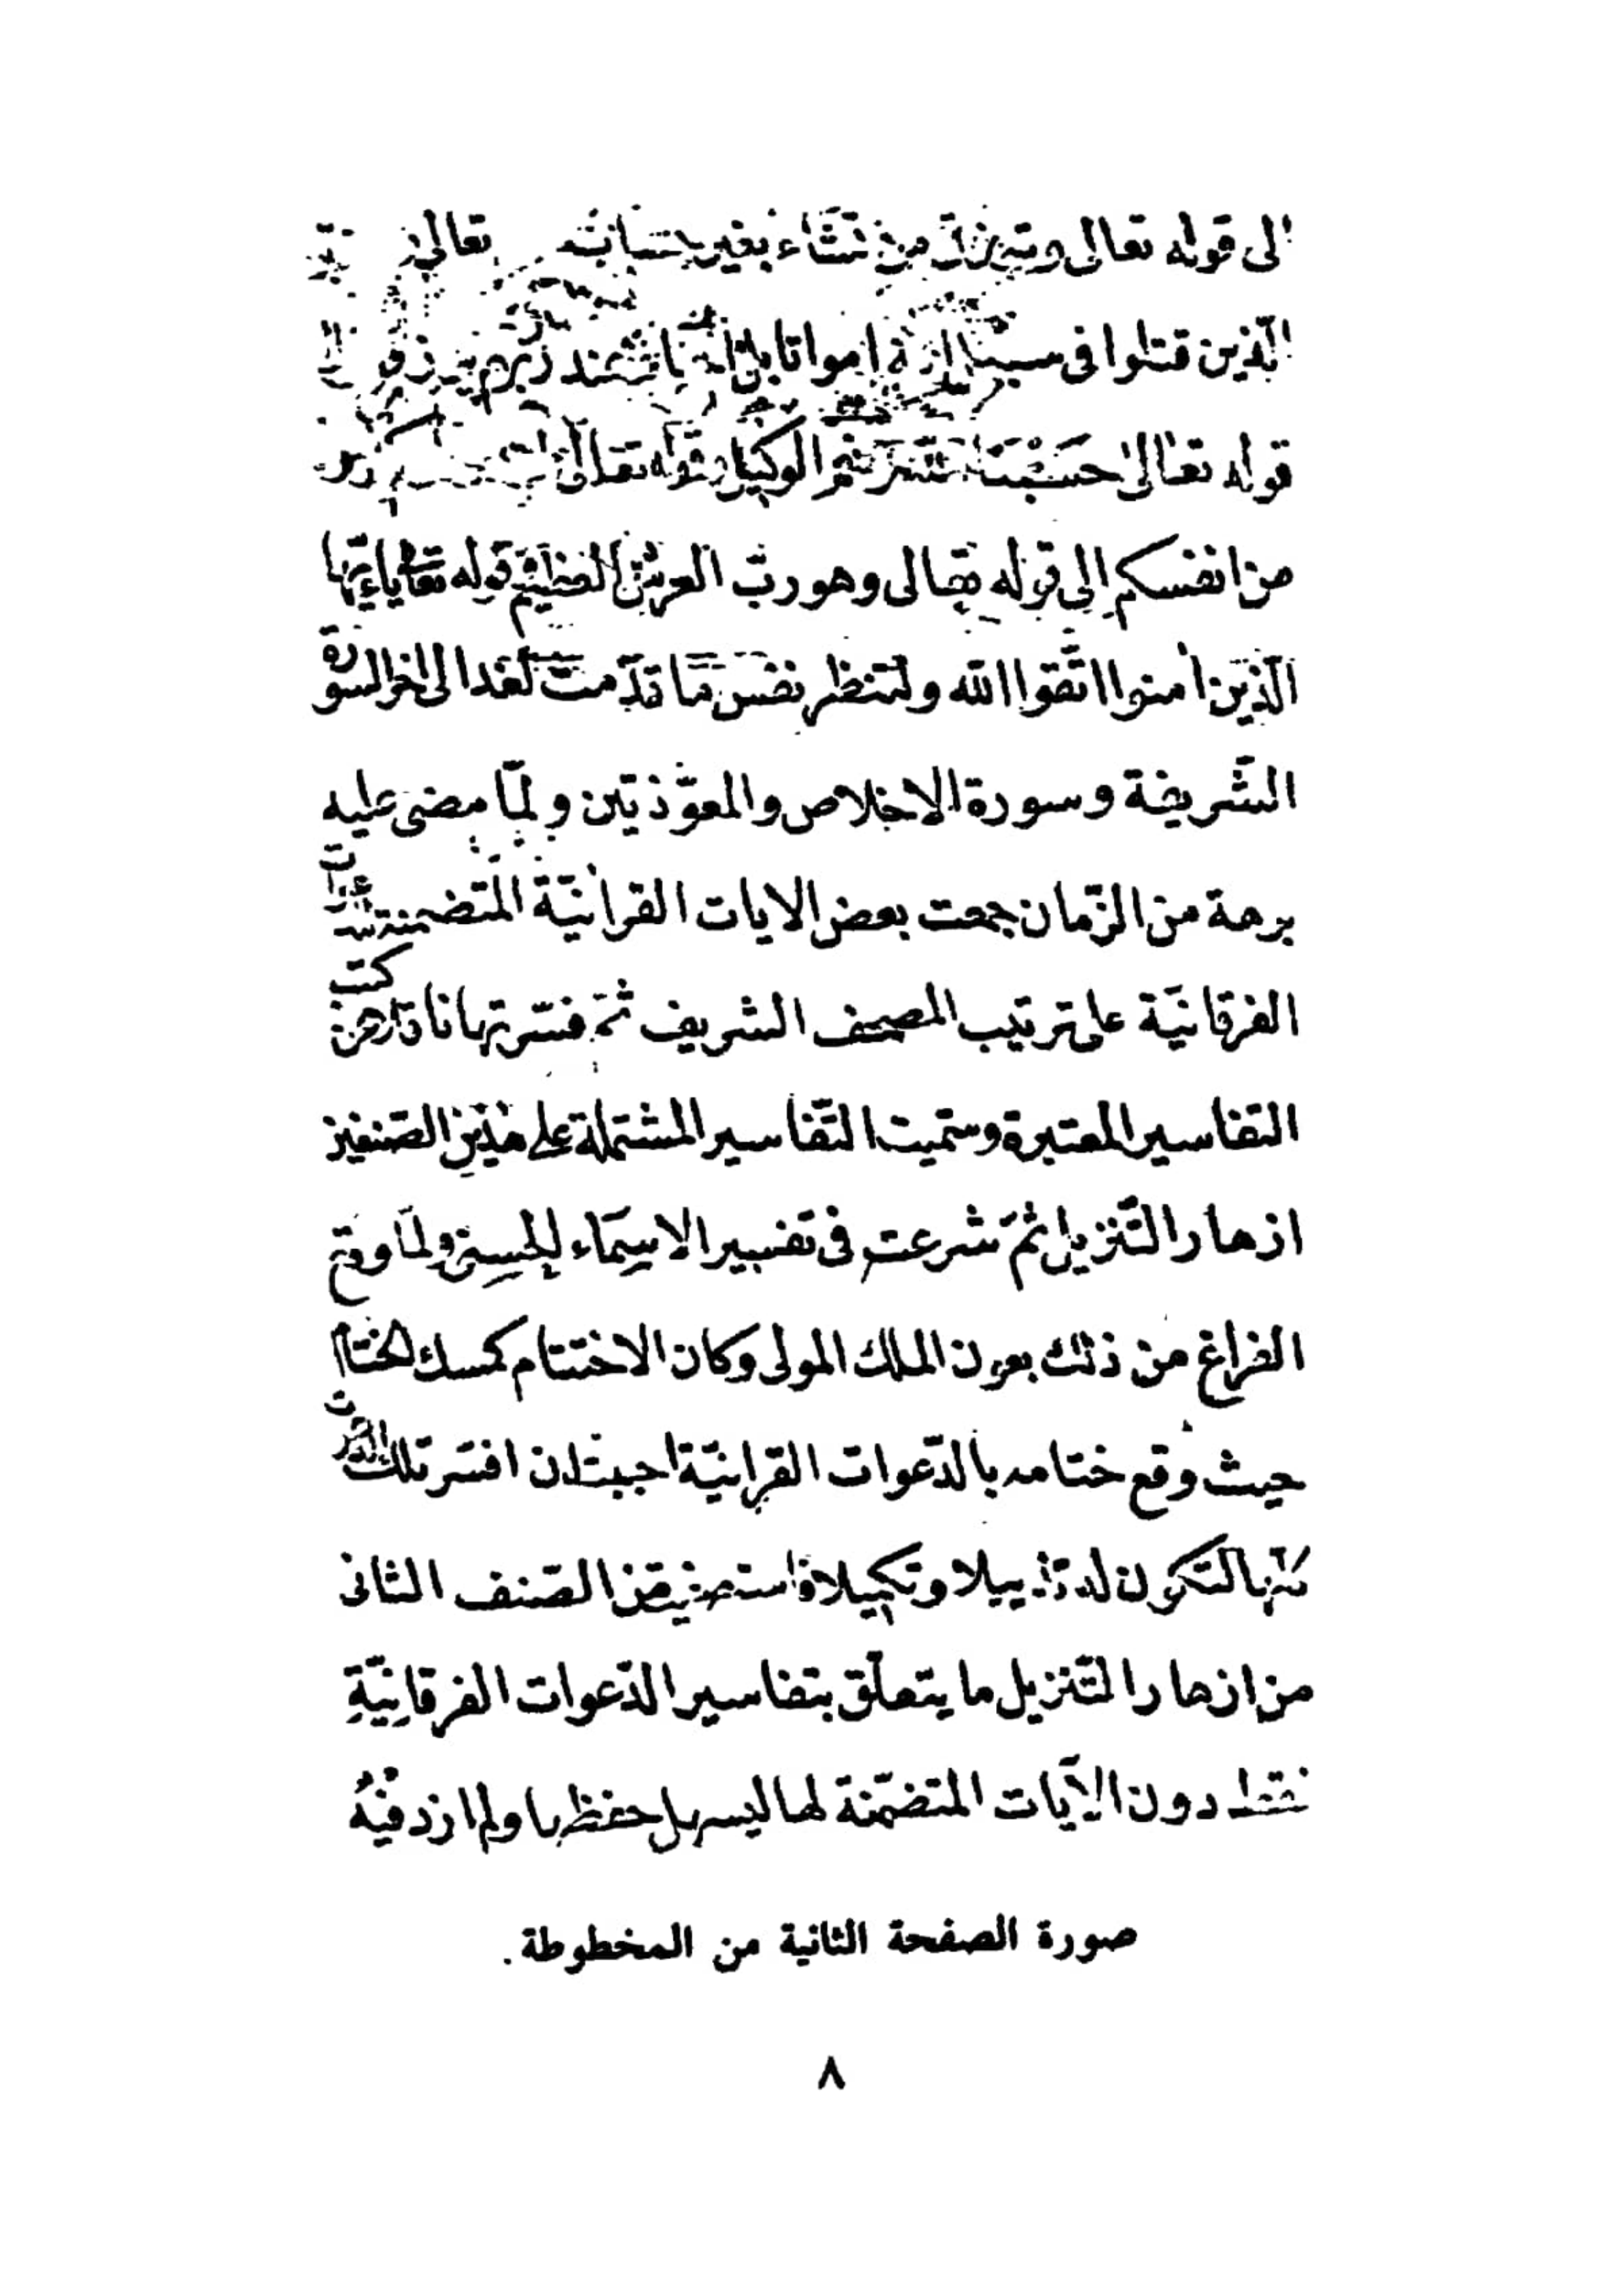 الى قوله تعالى وترزق من تشاء بغير حساب تعالى
الّذين قتلوا فى سبيل امواتا بل عند ربّهم يرزقون
قوله تعالى حسبنا الله ونعم الوكيل قوله تعالى
من انفسكم الى قوله تعالى وهو ربّ العرش العظيم قوله تعالى ياءيّها
الّذين امنوا اتّقوا الله ولتنظر نفس مّا قدّمت لغد الى اخر السورة
الشّريفة وسورة الاخلاص والمعوّذتين ولمّا مضى عليه
برهة من الزّمان جمعت بعض الايات القرانيّة المتضمنة
الفرقانيّة على ترتيب المصحف الشريف ثمّ فسّرتها من كتب
التفاسير المعتبرة وسمّيت التّفاسير المشتملة على هذين الصّنفين
ازهار التّنزيل ثمّ شرعت فى تفسير الاسمآء الحسنى ولمّا وقع
الفراغ من ذلك بعون الملك المولى وكان الاختتام كمسك الختام
حيث وقع ختامه بالدّعوات القرانيّة احببت ان افسّر تلك
لتكون له تذييلا وتكميلا من الصّنف الثانى
من ازهار التّنزيل ما يتعلّق بتفاسير الدّعوات الفرقانيّة
فقط دون الآيات المتضمّنة لها ليسهل حفظها ولم ازد فيه
صورة الصفحة الثانية من المخطوطة.
٨